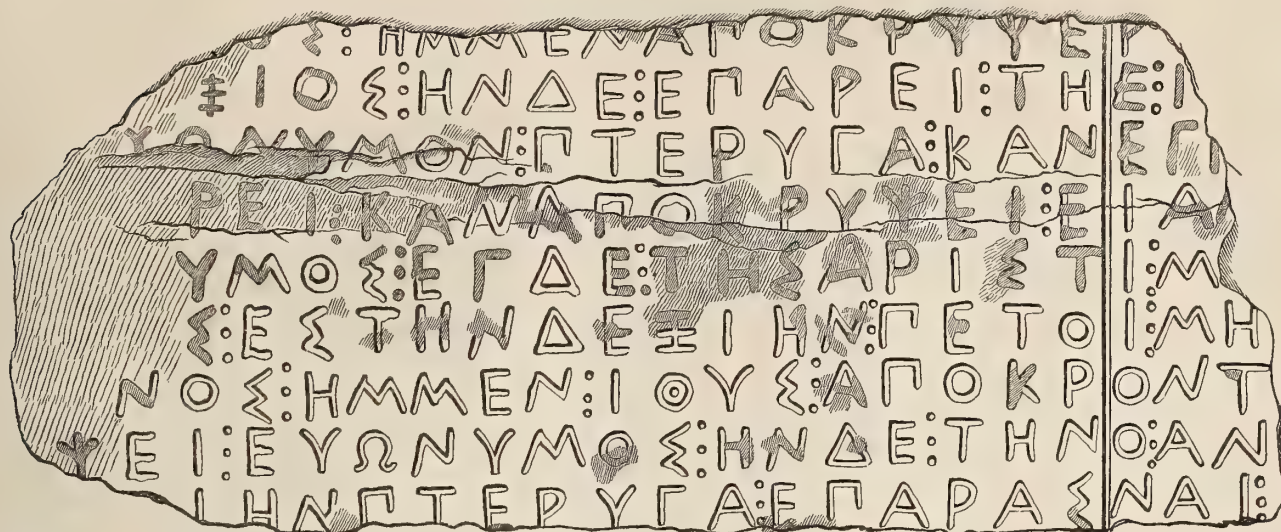 ΟΣ:ΗΜΜΕΝΑΠΟΚΡΥΨΕΡ
ΞΙΟΣ:ΗΝΔΕ:ΕΠΑΡΕΙ:ΤΗΕ:Ι
ΥΩΝΥΜΟΝ:ΠΤΕΡΥΓΑ:ΚΑΝΕΠ
ΡΕΙ:ΚΑΝΑΠΟΚΡΥΨΕΙ:ΕΙΑ
ΥΜΟΣ:ΕΓΔΕ:ΤΗΣΑΡΙΣΤΙ:Μ
Σ:ΕΣΤΗΝΔΕΞΙΗΝ:ΠΕΤΟΙ:ΜΗ
ΝΟΣ:ΗΜΜΕΝ:ΙΘΥΣ:ΑΠΟΚΡΟΝΤ
ΨΕΙ:ΕΥΩΝΥΜΟΣ:ΗΝΔΕ:ΤΗΝΟ:ΑΝ
ΙΗΝΠΤΕΡΥΓΑ:ΕΠΑΡΑΣΝΑΙ: